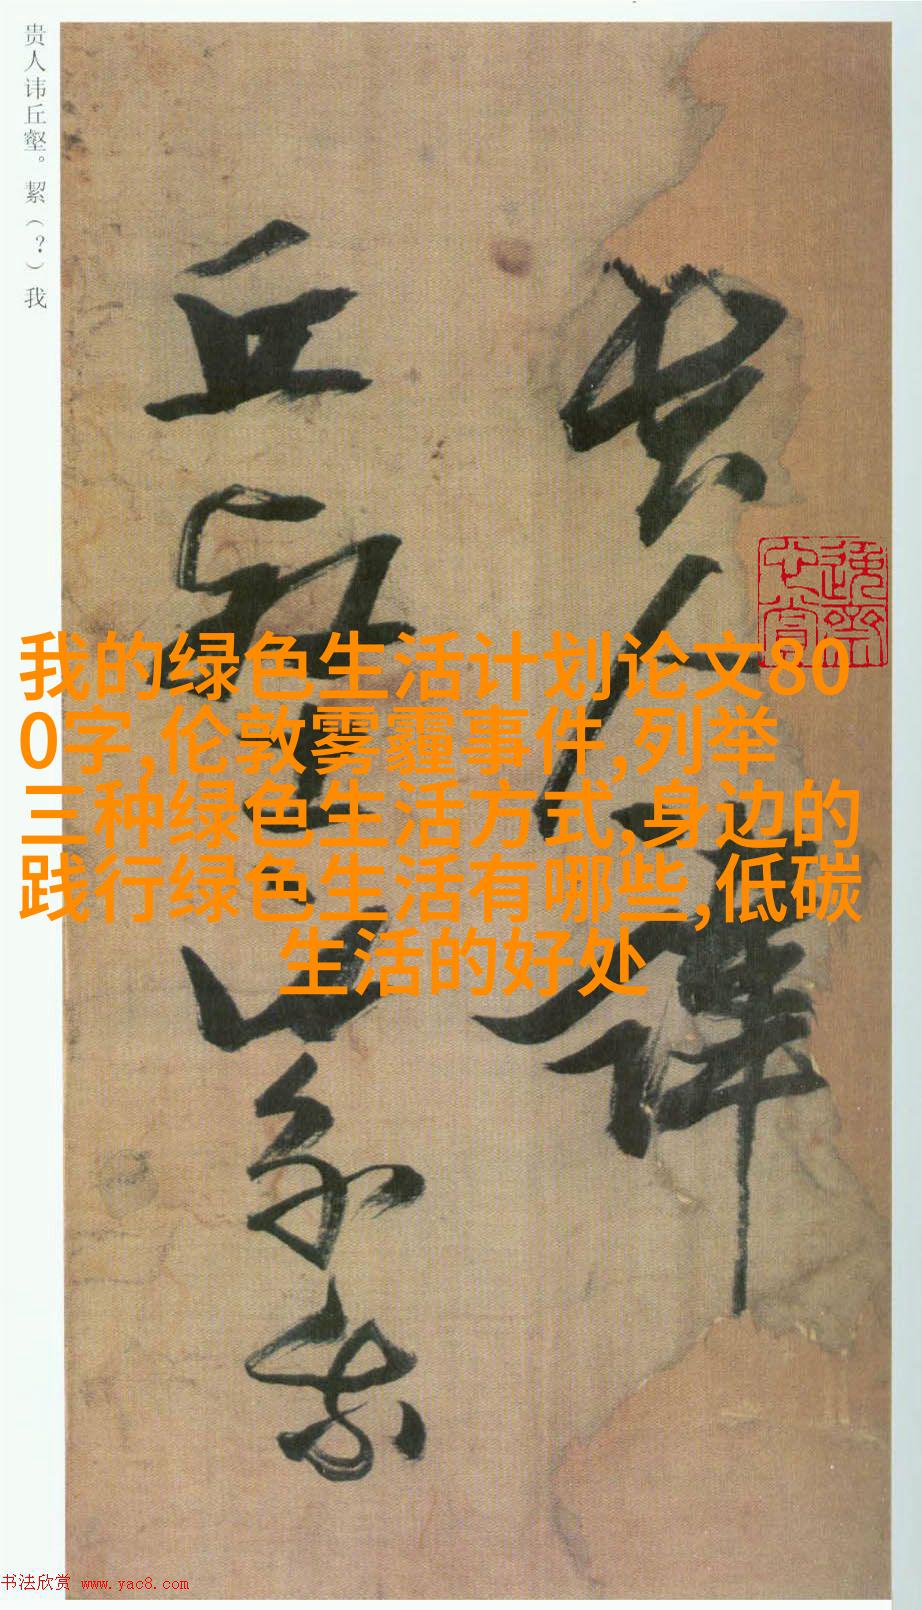 贵人讳丘壑。絜（？）我
贵人讳
丘壑絜我
我的绿色生活计划论文80
0字,伦敦雾霾事件,列举
三种绿色生活方式,身边的
践行绿色生活有哪些,低碳
生活的好处
书法欣赏 www.yac8.com